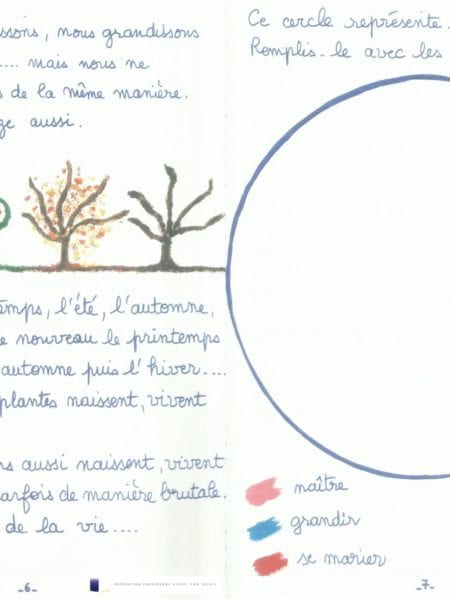 ssons, nous grandissons
.... mais nous ne
s de la même manière.
ge aussi.
emps, l'été, l'automne,
e nouveau le printemps
automne puis l'hiver....
plantes naissent, vivent
rs aussi naissent, vivent
arfois de manière brutale.
de la vie....
_6_
Ce cercle représente
Remplis-le avec les
naître
grandir
se marier
_7_